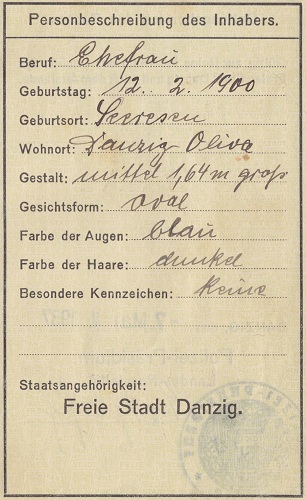 Personbeschreibung des Inhabers.
Beruf: Ehefrau
Geburtstag: 12. 2. 1900
Geburtsort: Seeresen
Wohnort: Danzig Oliva
Gestalt: mittel 1,64 m groß
Gesichtsform: oval
Farbe der Augen: blau
Farbe der Haare: dunkel
Besondere Kennzeichen: keine
Staatsangehörigkeit:
Freie Stadt Danzig.